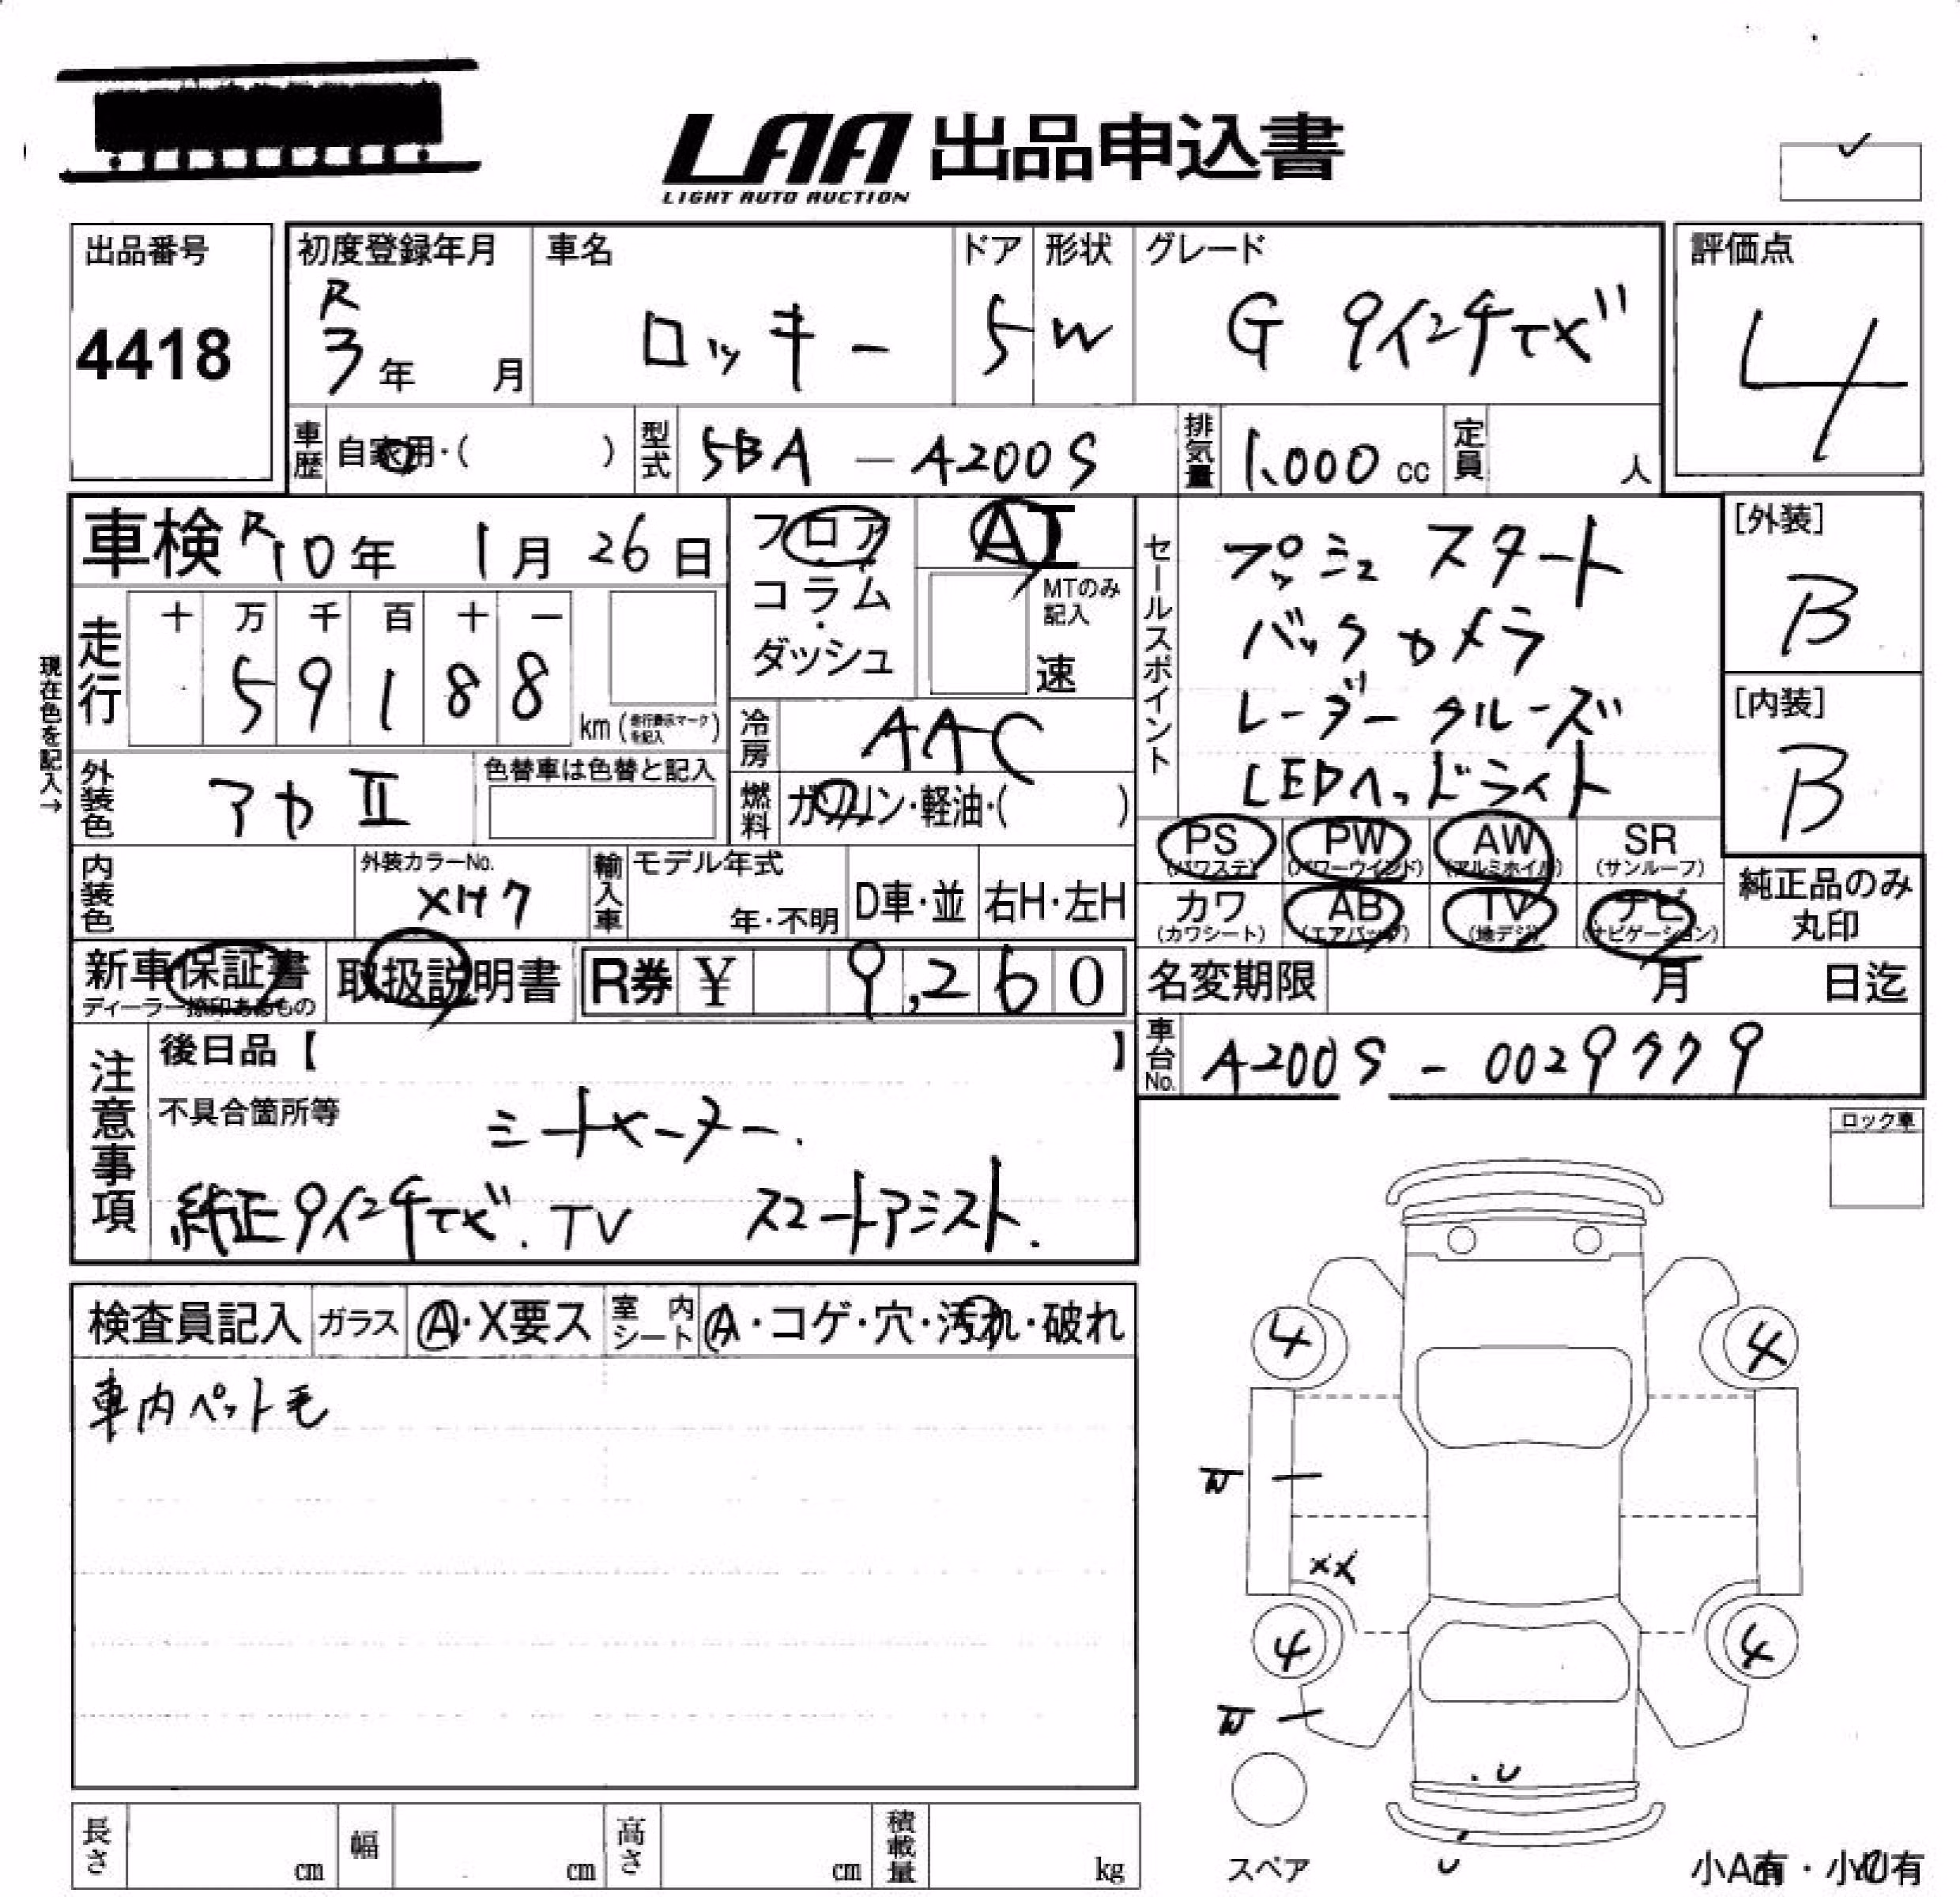 LAA 出品申込書
LIGHT AUTO AUCTION
出品番号
4418
初度登録年月
R
3年 月
車名
ロッキー
ドア
5
形状
W
グレード
G 9インチナビ
評価点
4
車歴
自家用・( )
型式
5BA-A200S
排気量
1,000 cc
定員
人
車検 R10年 1月 26日
フロア
コラム
・
ダッシュ
AI
MTのみ
記入
速
セールスポイント
プッシュスタート
バックカメラ
レーダークルーズ
LEDヘッドライト
[外装]
B
[内装]
B
現在色を記入→
走行
十 万 千 百 十 一
5 9 1 8 8
km(走行表示マークを記入)
冷房
AAC
外装色
アカII
色替車は色替と記入
燃料
ガソリン・軽油・( )
PS
(パワステ)
PW
(パワーウインド)
AW
(アルミホイル)
SR
(サンルーフ)
カワ
(カワシート)
AB
(エアバッグ)
TV
(地デジ)
ナビ
(ナビゲーション)
純正品のみ
丸印
内装色
外装カラーNo.
輸入車
モデル年式
年・不明
D車・並
右H・左H
新車保証書
ディーラー捺印あるもの
取扱説明書
R券 ¥ 9,260
名変期限
月 日迄
車台No.
A200S-0029779
注意事項
後日品【 】
不具合箇所等
シートヒーター.
純正9インチナビ.TV スマートアシスト.
ロック車
検査員記入
ガラス
A・X要ス
室内シート
A・コゲ・穴・汚れ・破れ
車内ペット毛
4
4
XX
4
4
U
U
スペア
小A有・小U有
長さ
cm
幅
cm
高さ
cm
積載量
kg